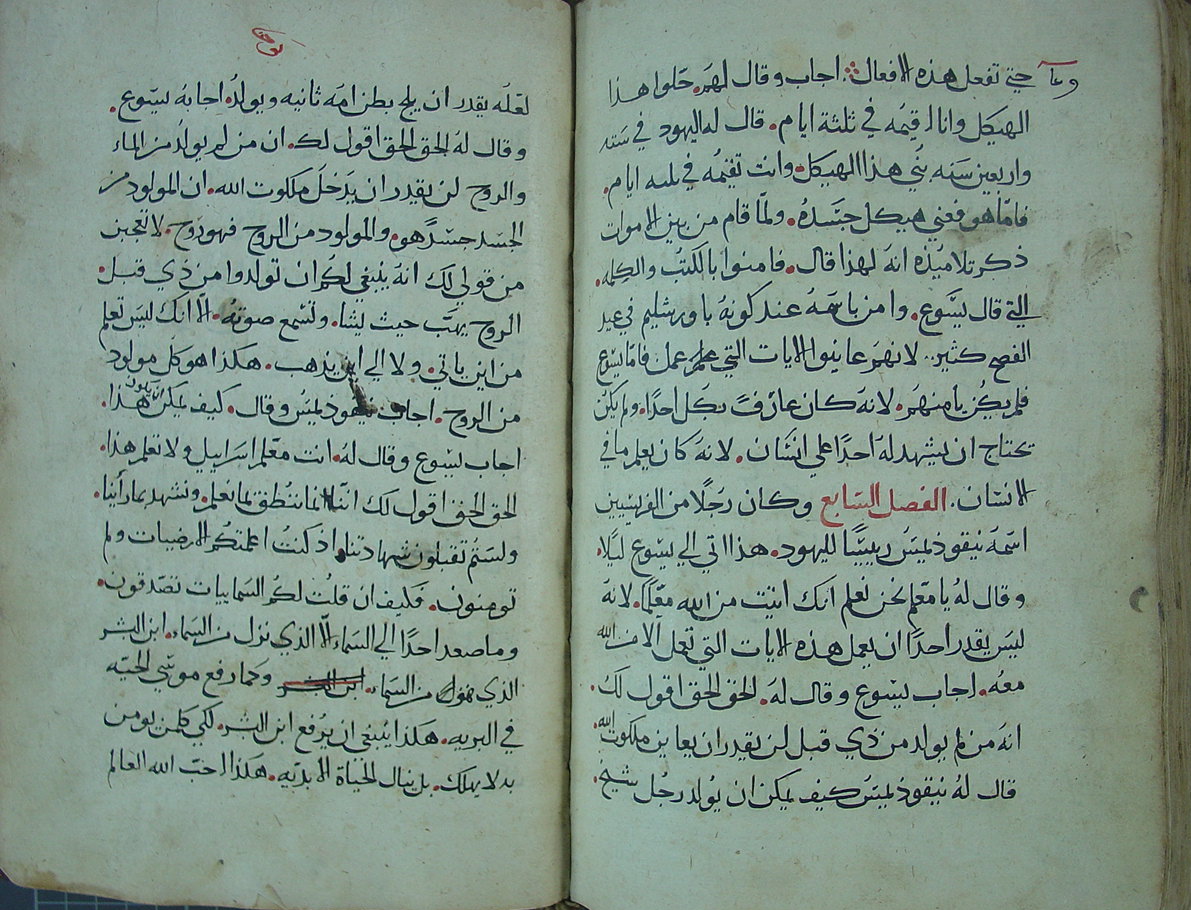 حتي تفعل هذه الافعال. اجاب وقال لهم. حلوا هذا
الهيكل وانا اقيمه في ثلثة ايام. قال له اليهود في سته
واربعين سنه بُني هذا الهيكل. وانت تقيمُه في ثلثه ايام.
فامّا هو فعني هيكل جسَدهُ. ولمّا قام من بين الاموات
ذكر تلاميذه انهَ لهذا قال. فامنوا بالكتبُ والكلمه.
التي قال يسَوع. وامن باسمهُ عند كونهُ باورشليم في عيد
الفصح كثير.. لانهم عاينوا الايات التي عمل فامّا يسوع
فلم يكن يامنهم. لانهَ كان عارفً بكل احدًا. ولم يكن
يحتاج ان يشهد له احدًا علي انسَان. لانهُ كان يعلم ما في
الانسَان. الفصل السَابع وكان رَجلًا من الفريسيين
اسمَهُ نيقوذيمسَ ريسًا لليهود. هذا اتي الي يسوع ليلًا.
وقال لهُ يا معَلم نحن نعلم انك اتيت من الله معَلمًا. لانهَ
ليسَ يقدر احدًا ان يعمل هذه الايات التي تعمل الا من الله
معهُ. اجاب يسوع وقال لهَ. الحق الحق اقول لكَ.
انهَ من لم يولد من ذي قبل لن يقدر ان يعاين ملكوت الله.
قال لهُ نيقوذيمسَ كيف يمكن ان يُولد رجُل شيخ.
لعَلهُ يقدر ان يلج بطن امهَ ثانيه ويولدُ. اجابهُ يسَوع.
وقال لهُ الحق الحق اقول لك. ان من لم يولدُ من الماء
والروح لن يقدر ان يدَخلَ ملكوت الله. ان المولود من
الجسَد جسَدًا هو. والمولود من الروح فهو رُوح. لا تعجبن
من قولي لك انهَ ينبغي لكُم ان تولدوا من ذي قبل.
الروح يهبَّ حيث يشا. وتسَمع صوتهُ. الاّ انك ليسَ تعلم
من اين ياتي. ولا الي اين يذهب. هكذا هو كل مولود
من الروح. اجاب نيقوذيمسَ وقال. كيف يمكن ان يكون هذا.
اجاب يسَوع وقال لهُ. انت معَلم اسراييل ولا تعلم هذا.
الحق الحق اقول لك اننّا انما ننطق بما نعلم. ونشهد بما رأينا.
ولسَتمُ تقبلون شهادتنا. اذ كنتُ اعلمتكُم الارضيات ولم
تومنون. فكيف ان قلتُ لكُم السَماييات تصَدقون.
وما صعد احدًا الي السَماء الاّ الذي نزل من السَماء. ابن البشر
الذي هو من السَماء. وكما رفع موسَي الحيَه
في البريه. هكذا ينبغي ان يُرفع ابن البشر. لكي كلمن يومن
به لا يهلك. بل ينال الحياة الابديَه. هكذا احبّ الله العالم